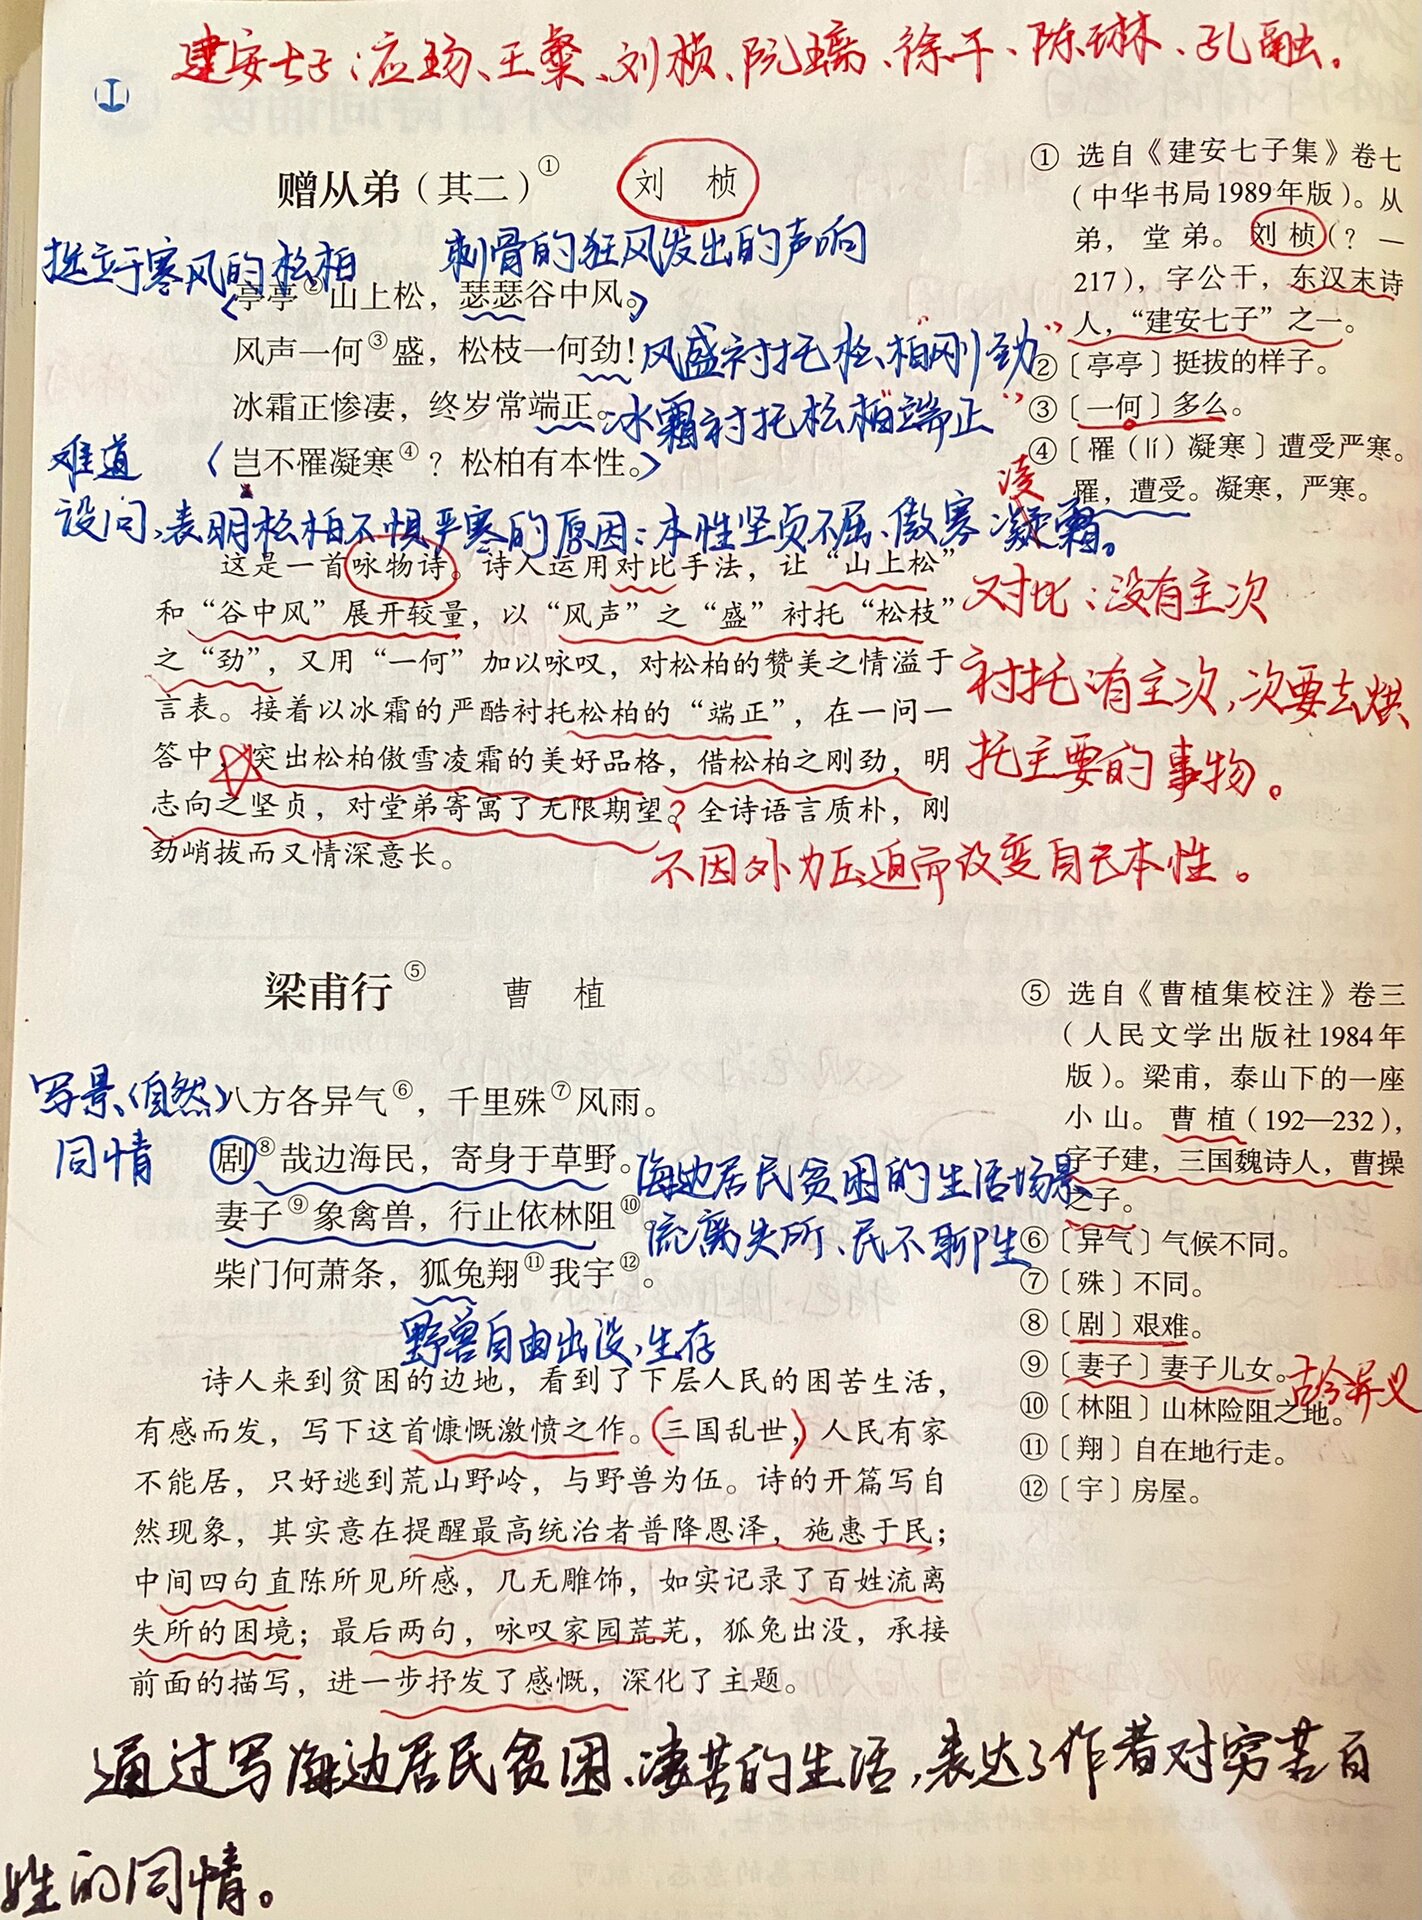 建安七子：应玚、王粲、刘桢、阮瑀、徐干、陈琳、孔融。
赠从弟（其二）① 刘 桢
挺立于寒风的松柏 刺骨的狂风发出的声响
亭亭②山上松，瑟瑟谷中风。
风声一何③盛，松枝一何劲！风盛衬托松、柏“刚劲”
冰霜正惨凄，终岁常端正。冰霜衬托松柏“端正”
难道 岂不罹凝寒④？松柏有本性。
设问，表明松柏不惧严寒的原因：本性坚贞不屈、傲寒凌霜。
这是一首咏物诗。诗人运用对比手法，让“山上松”
和“谷中风”展开较量，以“风声”之“盛”衬托“松枝”
之“劲”，又用“一何”加以咏叹，对松柏的赞美之情溢于
言表。接着以冰霜的严酷衬托松柏的“端正”，在一问一
答中，突出松柏傲雪凌霜的美好品格，借松柏之刚劲，明
志向之坚贞，对堂弟寄寓了无限期望。全诗语言质朴，刚
劲峭拔而又情深意长。
对比：没有主次
衬托：有主次，次要去烘
托主要的事物。
不因外力压迫而改变自己本性。
① 选自《建安七子集》卷七
（中华书局1989年版）。从
弟，堂弟。刘桢（？—
217），字公干，东汉末诗
人，“建安七子”之一。
②〔亭亭〕挺拔的样子。
③〔一何〕多么。
④〔罹（lí）凝寒〕遭受严寒。
罹，遭受。凝寒，严寒。
梁甫行⑤ 曹 植
写景（自然）八方各异气⑥，千里殊⑦风雨。
同情 剧⑧哉边海民，寄身于草野。海边居民贫困的生活场景
妻子⑨象禽兽，行止依林阻⑩。流离失所、民不聊生
柴门何萧条，狐兔翔⑪我宇⑫。
野兽自由出没、生存
诗人来到贫困的边地，看到了下层人民的困苦生活，
有感而发，写下这首慷慨激愤之作。三国乱世，人民有家
不能居，只好逃到荒山野岭，与野兽为伍。诗的开篇写自
然现象，其实意在提醒最高统治者普降恩泽，施惠于民；
中间四句直陈所见所感，几无雕饰，如实记录了百姓流离
失所的困境；最后两句，咏叹家园荒芜，狐兔出没，承接
前面的描写，进一步抒发了感慨，深化了主题。
⑤ 选自《曹植集校注》卷三
（人民文学出版社1984年
版）。梁甫，泰山下的一座
小山。曹植（192—232），
字子建，三国魏诗人，曹操
之子。
⑥〔异气〕气候不同。
⑦〔殊〕不同。
⑧〔剧〕艰难。
⑨〔妻子〕妻子儿女。古今异义
⑩〔林阻〕山林险阻之地。
⑪〔翔〕自在地行走。
⑫〔宇〕房屋。
通过写海边居民贫困、凄苦的生活，表达了作者对穷苦百
姓的同情。